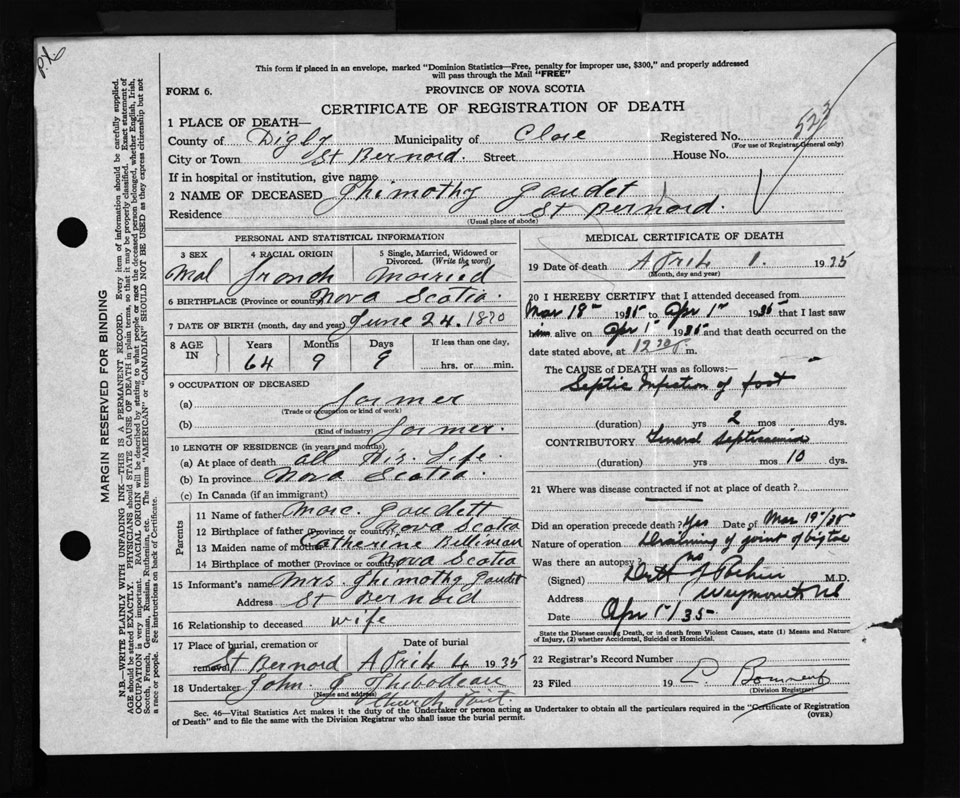 P.X.
This form if placed in an envelope, marked "Dominion Statistics—Free, penalty for improper use, $300," and properly addressed
will pass through the Mail "FREE"
FORM 6.
PROVINCE OF NOVA SCOTIA
CERTIFICATE OF REGISTRATION OF DEATH
1 PLACE OF DEATH—
County of Digby Municipality of Clare Registered No. 523
(For use of Registrar General only)
City or Town St Bernard. Street House No.
If in hospital or institution, give name
2 NAME OF DECEASED Thimothy Gaudet
Residence St Bernard.
(Usual place of abode)
PERSONAL AND STATISTICAL INFORMATION
3 SEX 4 RACIAL ORIGIN 5 Single, Married, Widowed or
Divorced. (Write the word)
Mal French Married
6 BIRTHPLACE (Province or country) Nova Scotia.
7 DATE OF BIRTH (month, day and year) June 24. 1870
8 AGE IN Years Months Days If less than one day,
64 9 9 hrs. or min.
9 OCCUPATION OF DECEASED
(a) Farmer
(Trade or occupation or kind of work)
(b) Farmer.
(Kind of industry)
10 LENGTH OF RESIDENCE (in years and months)
(a) At place of death all His Life.
(b) In province Nova Scotia.
(c) In Canada (if an immigrant)
Parents
11 Name of father Marc. Gaudett
12 Birthplace of father (Province or country) Nova Scotia
13 Maiden name of mother Catherine Belliveau
14 Birthplace of mother (Province or country) Nova Scotia
15 Informant's name Mrs. Thimothy Gaudet
Address St Bernard
16 Relationship to deceased wife
17 Place of burial, cremation or Date of burial
removal St Bernard April 4 1935
18 Undertaker John. E Thibodeau
(Name and address)
Church Point
MEDICAL CERTIFICATE OF DEATH
19 Date of death April 1. 1935
(Month, day and year)
20 I HEREBY CERTIFY that I attended deceased from
Mar 18th 1935 to Apr 1st 1935 that I last saw
him alive on Apr 1st 1935 and that death occurred on the
date stated above, at 12 30 P. m.
The CAUSE of DEATH was as follows:—
Septic Infection of foot
(duration) yrs 2 mos dys.
CONTRIBUTORY General Septicaemia
(duration) yrs mos 10 dys.
21 Where was disease contracted if not at place of death?
Did an operation precede death? Yes Date of Mar 19th/35
Nature of operation Draining of joint of big toe
Was there an autopsy? no
(Signed) M.D.
Address Weymouth NS
Date Apr 1st/35
State the Disease causing Death, or in death from Violent Causes, state (1) Means and Nature
of Injury, (2) whether Accidental, Suicidal or Homicidal.
22 Registrar's Record Number
23 Filed 19
(Division Registrar)
Sec. 46—Vital Statistics Act makes it the duty of the Undertaker or person acting as Undertaker to obtain all the particulars required in the "Certificate of Registration
of Death" and to file the same with the Division Registrar who shall issue the burial permit.
(OVER)
MARGIN RESERVED FOR BINDING
N.B.—WRITE PLAINLY WITH UNFADING INK—THIS IS A PERMANENT RECORD. Every item of information should be carefully supplied.
AGE should be stated EXACTLY. PHYSICIANS should STATE CAUSE OF DEATH in plain terms, so that it may be properly classified. Exact statement of
OCCUPATION is very important. RACIAL ORIGIN will be described by stating to what people or race the deceased person belonged, whether English, Irish,
Scotch, French, German, Russian, Ruthenian, etc. The terms "AMERICAN" or "CANADIAN" SHOULD NOT BE USED as they express citizenship but not
a race or people. See instructions on back of Certificate.